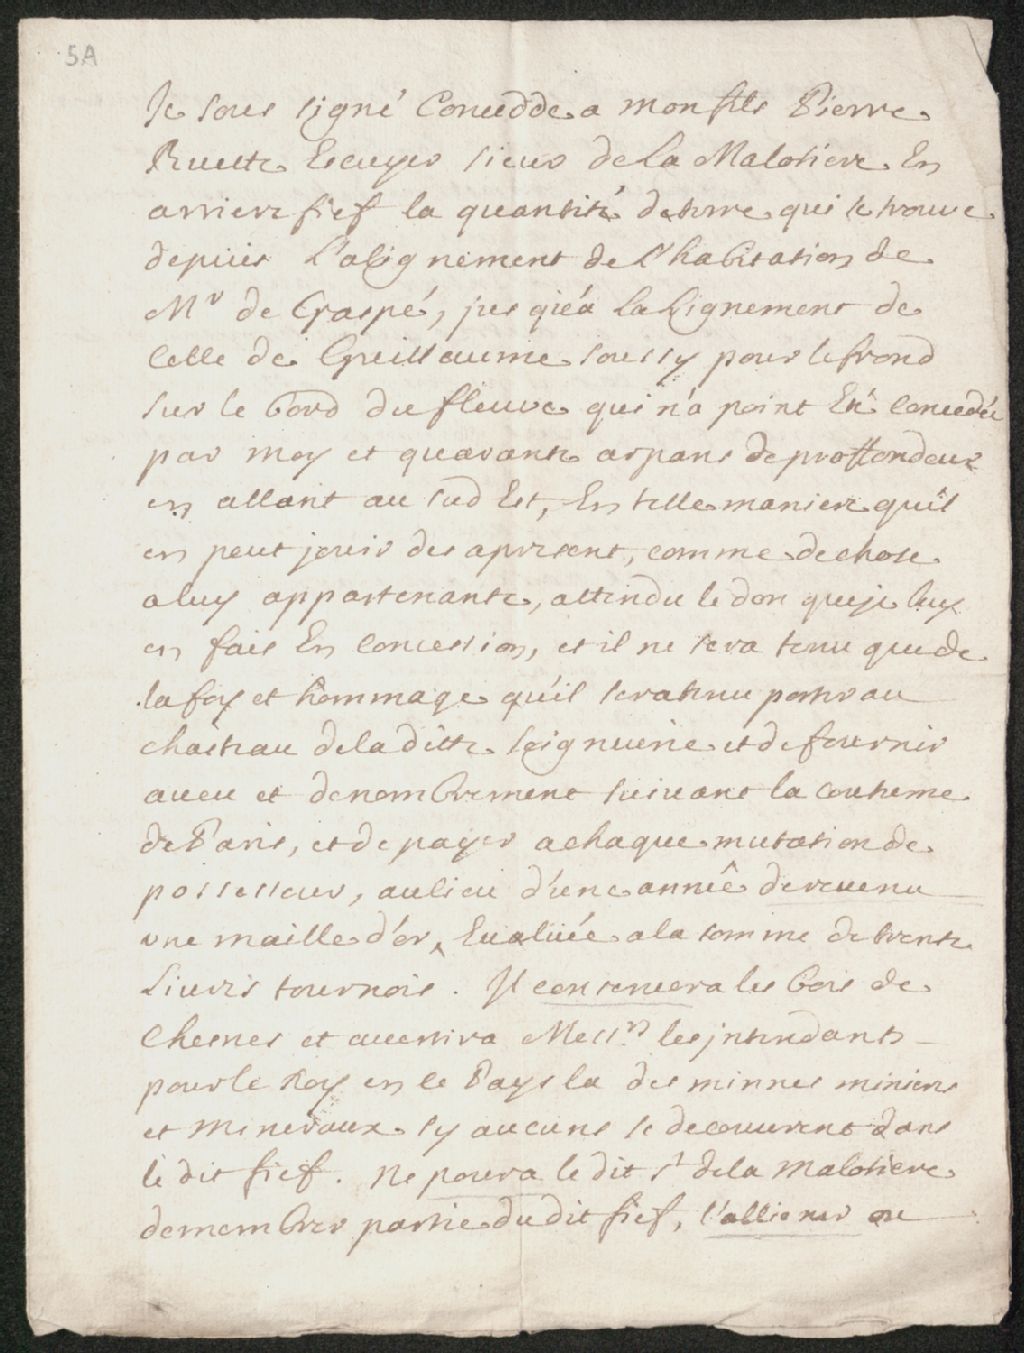 5A
Je sous signé Concedde a mon fils Pierre
Ruette Escuyer sieur de la Malotiere En
arriere fief la quantité de terre qui se trouve
depuis L'alignement de l'habitation de
Mr de Gaspé, jusqi'éa la Lignement de
celle de Guillaume soussy pour le frond
sur le bord du fleuve qui n'a point Eté Concedée
par moy et quarante arpans de proffondeur
en allant au sud Est, En telle maniere qu'il
en peut jouir des apresent, comme de chose
a luy appartenante, attendu le don que je luy
en fais En concession, et il ne sera tenu que de
la foy et hommage qu'il sera tenu porter au
chasteau de la ditte seigneurie et de fournir
aveu et denombrement suivant la couteme
de Paris, et de payer a chaque mutation de
possesseur, au lieu d'une année de revenu
une maille d'or, Evaluée a la somme de trente
Livres tournois. Il conservera les bois de
Chesnes et avertira Messrs les jntendants
pour le Roy en le Pays la des minnes miniere
et Mineraux sy aucuns se decouvrent dans
le dit fief. Ne poura le dit Sr de la Malotiere
demembrer partie du dit fief, l'alliener ou